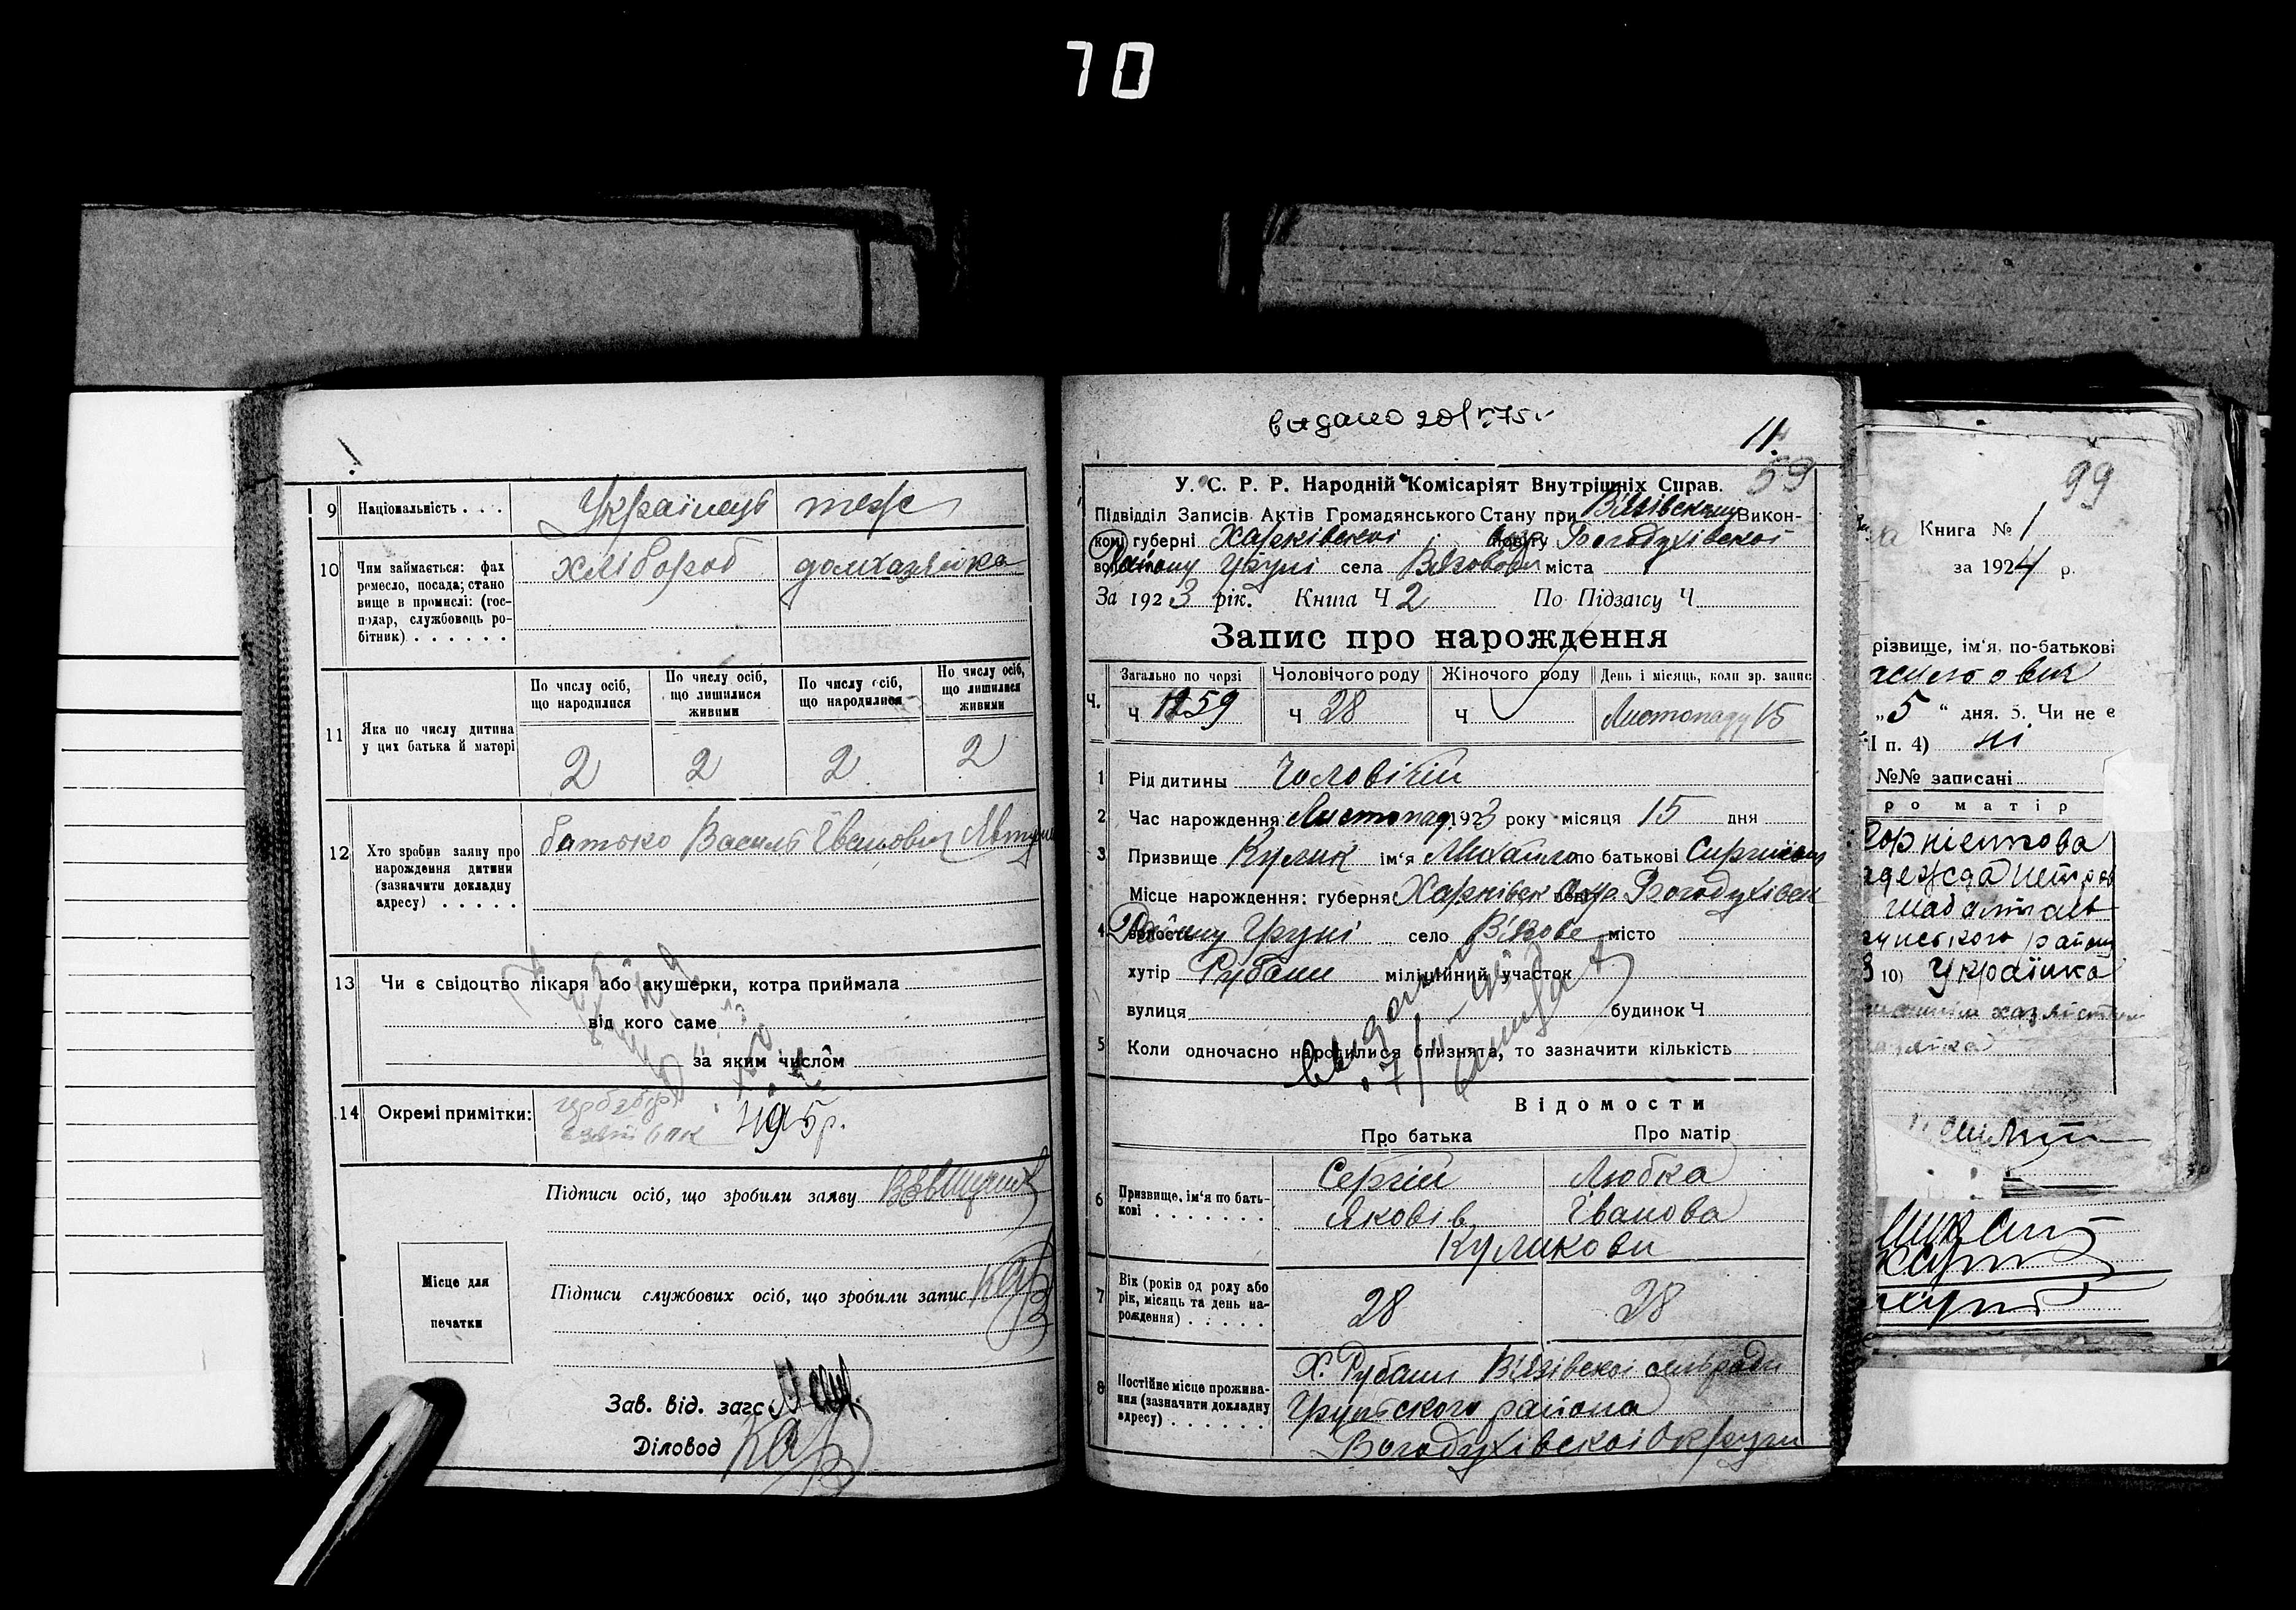 70
9 Національність . . . Українець теж
10 Чим займається: фах ремесло, посада; стано
вище в промислі: (гос-
подар, службовець ро-
бітник) . . . . . .
хлібороб домхазяйка
11 Яка по числу дитина
у цих батька й матері
По числу осіб, що народилися
По числу осіб, що лишилися живими
По числу осіб, що народилися
По числу осіб, що лишилися живими
2 2 2 2
12 Хто зробив заяву про
нарождення дитини
(зазначити докладну
адресу) . . . . .
батько Василь Іванович
13 Чи є свідоцтво лікаря або акушерки, котра приймала
від кого саме
за яким числом
14 Окремі примітки:
Підписи осіб, що зробили заяву
Місце для
печатки
Підписи службових осіб, що зробили запис
Зав. від. загс
Діловод
видано
11
59
У. С. Р. Р. Народній Комісаріят Внутрішніх Справ.
Підвідділ Записів Актів Громадянського Стану при Вязівському Викон-
комі губерні Харківскої повіту Богодухівскої
Району Груні села Вязовой міста
За 1923 рік. Книга Ч 2 По Підзагсу Ч
Запис про нарождення
Ч.
Загально по черзі Чоловічого роду Жіночого роду День і місяць, коли зр. запис
Ч 59 Ч 28 Ч Листопаду 15
1 Рід дитины Чоловічій
2 Час нарождення: Листопад 1923 року місяця 15 дня
3 Призвище Кулик ім'я Михайло по батькові Сиргиївич
Місце нарождення: губерня Харківск повіт Богодухівск
4 волость Груні село Вязове місто
хутір Рубани міліційний участок
вулиця будинок Ч
5 Коли одночасно народилися близнята, то зазначити кількість
Відомости
Про батька Про матір
6 Призвище, ім'я по бать-
кові . . . . . . .
Сергій Любка
Яковів Іванова
Куликови
7 Вік (років од роду або
рік, місяць та день на-
рождення) . . . . .
28 28
8 Постійне місце прожива-
ння (зазначити докладну
адресу) . . . . . .
Х. Рубани Вязівскої сільради
Грунського района
Богодухівскої Округи
99
Книга № 1
за 1924 р.
різвище, ім'я, по-батькові
„5“ дня. 5. Чи не є
п. 4) ні
№№ записані
ро матір
10) Українка